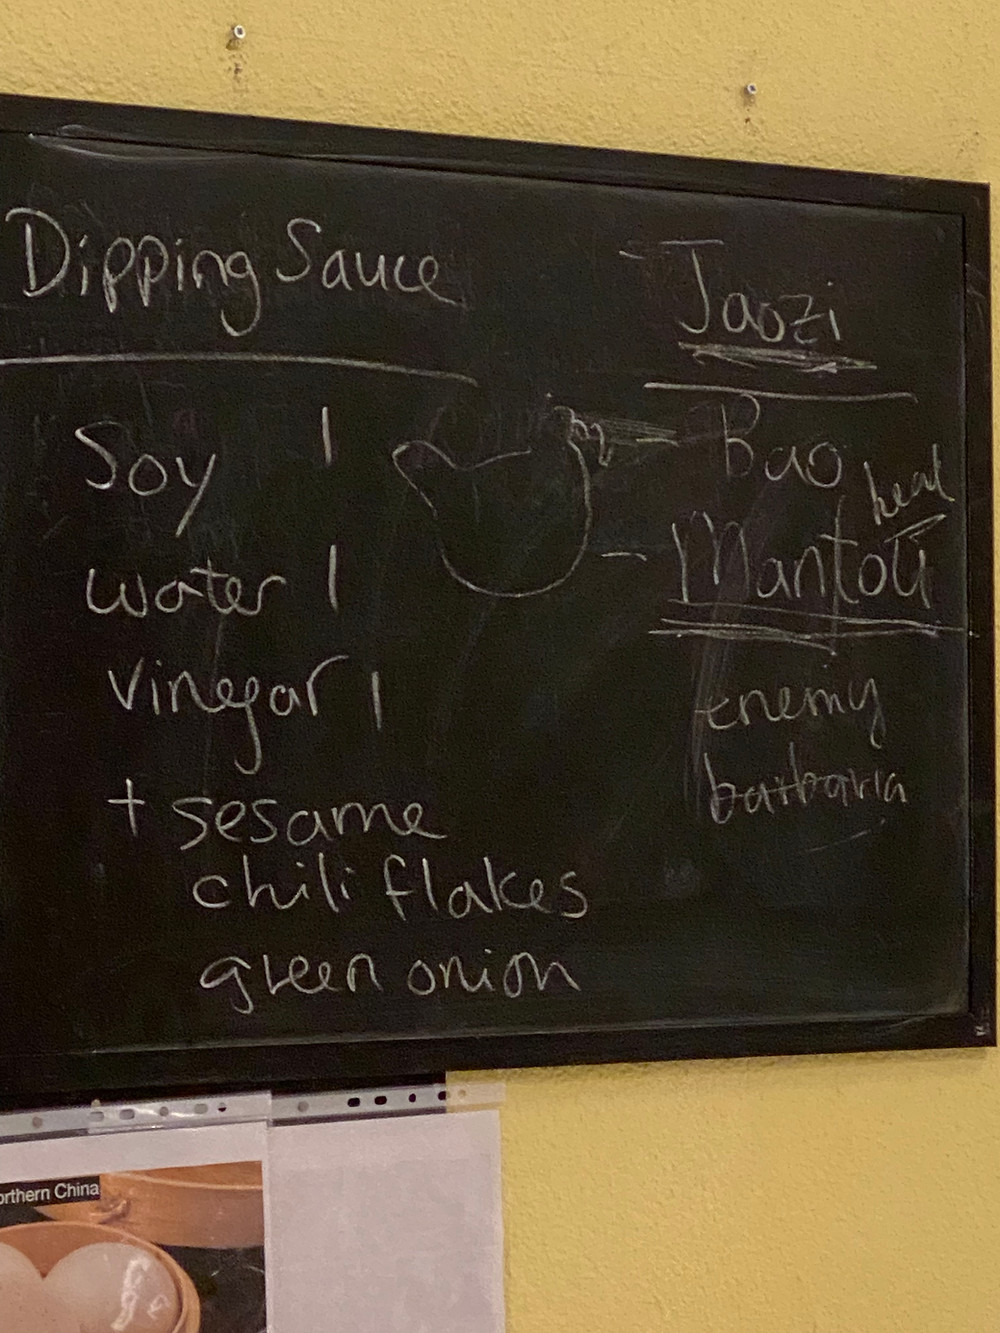 Dipping Sauce
Soy 1
water 1
vinegar 1
+ sesame
chili flakes
green onion
- Jaozi
- Bao
head
- Mantou
enemy
barbaria
orthern China